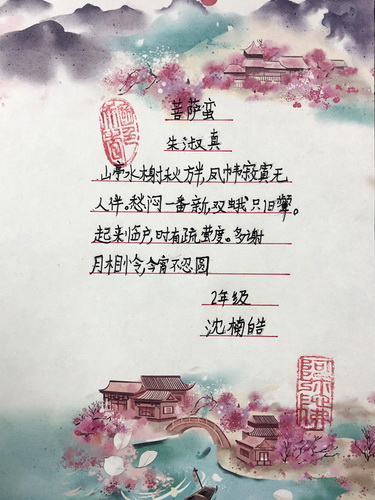 菩萨蛮
朱淑真
山亭水榭秋方半,凤帏寂寞无
人伴。愁闷一番新,双蛾只旧颦。
起来临户,时有疏萤度。多谢
月相怜,今宵不忍圆
2年级
沈楠皓
阿弥陀佛